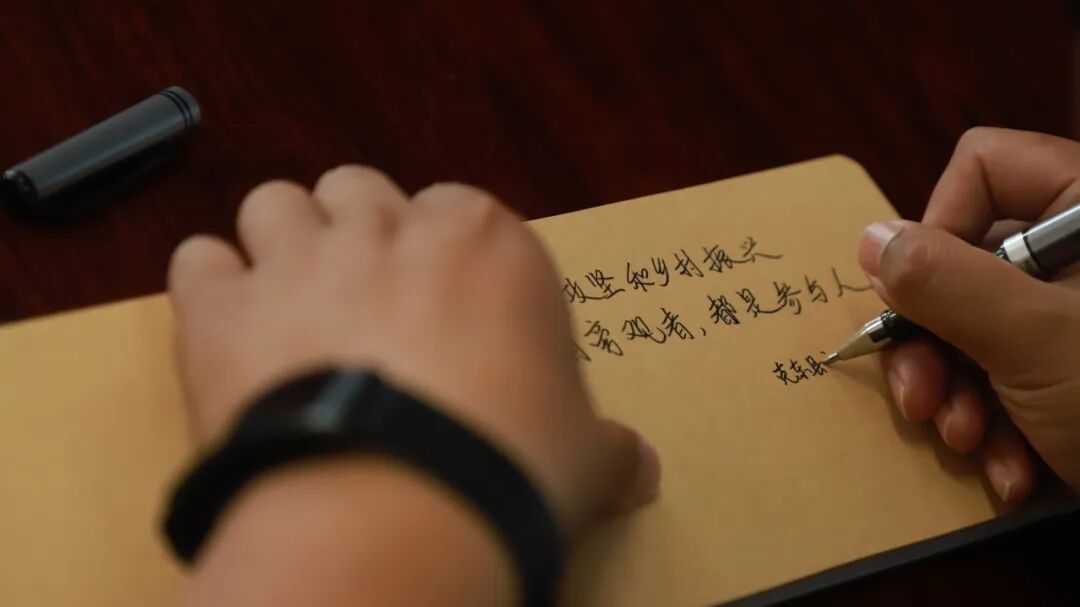 攻坚和乡村振兴
离观者,都是参与人
克东县